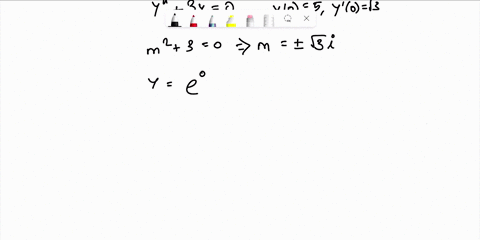 y" + 3y = 0 y(0) = 5, y'(0) = √3
m² + 3 = 0 ⇒ m = ± √3 i
y = e⁰